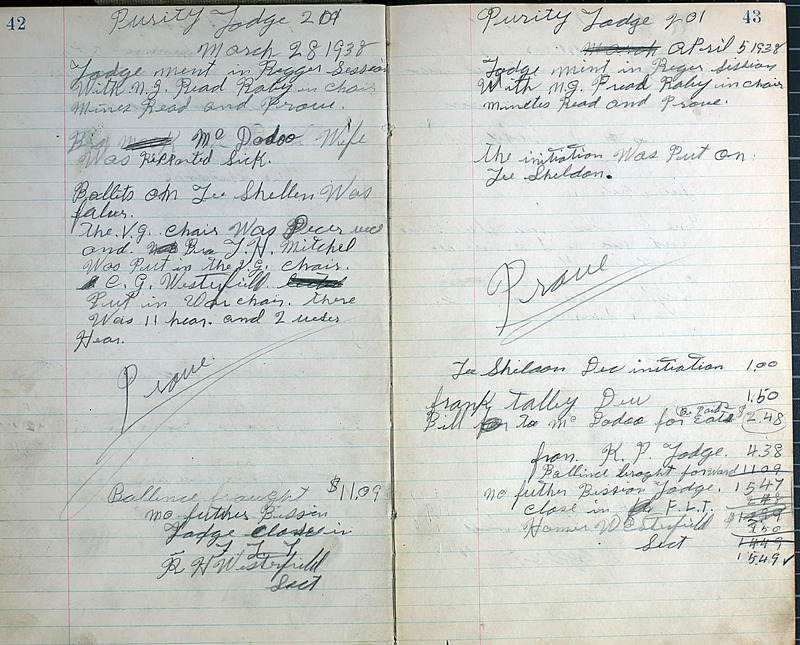 42
Purity Lodge 201
March 28 1938
Lodge ment in Regger Session
With N.G. Read Raby in chair
Mines Read and Prove.
Bro Mc Dadoo Wife
Was Repported Sick.
Ballets on Lee Shellen Was
faber.
The V.G. chair Was
and Bro J. H. Mitchel
Was Put in the V.G. chair.
C. G. Westerfield
Put in War chair. there
Was 11 hear. and 2
Hear.
Prove.
Ballince brought $11.09
no futher Bissin
Lodge Close in
F. L. T.
R H Westerfield
Sect
43
Purity Lodge 201
April 5 1938
Lodge ment in Reger Session
With N.G. Read Raby in chair
minetes Read and Prove.
The initiation Was Put on
Lee Sheldon.
Prove
Lee Sheldon Dec initiation 1.00
frank Talley Deu 1.50
Bill for Lee Mc Dadoo for Eats Paid $2.48
from K. P. Lodge. 4.38
Ballince braght forward 11 09
no futher Bission Lodge. 1547
Close in F. L. T.
Homer Westerfield
Sect
1549